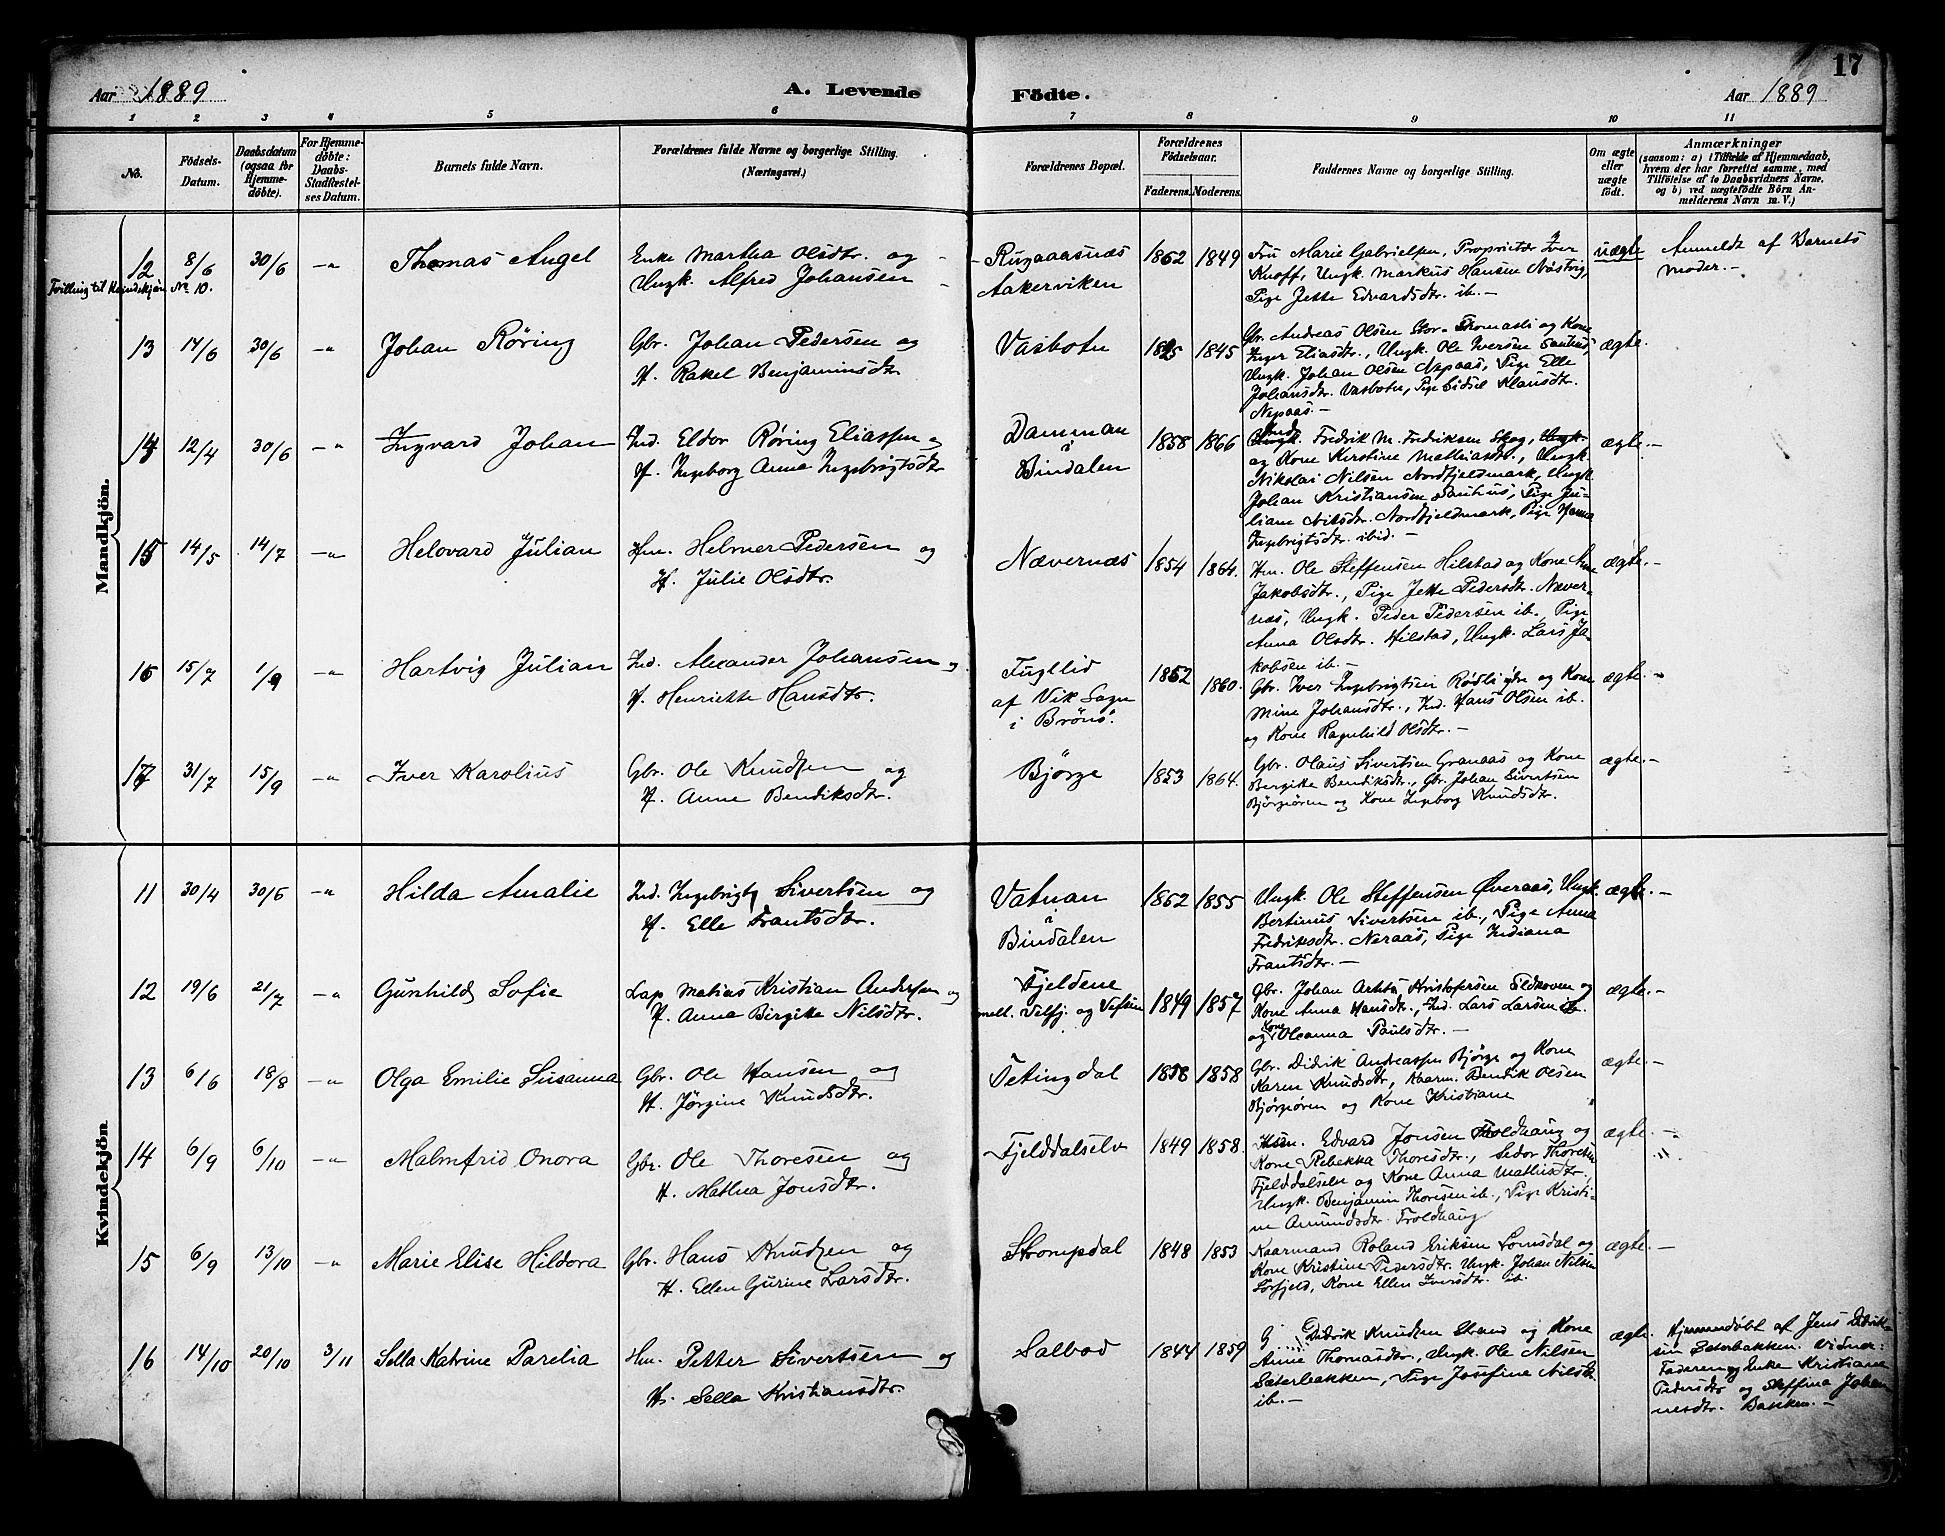 17
Aar 1889
A. Levende Födte.
Aar 1889
1 2 3 4 5 6 7 8 9 10 11
No.
Födsels-Datum.
Daabsdatum (ogsaa for Hjemmedöbte).
For Hjemmedöbte: Daabs-Stadfæstelses Datum.
Barnets fulde Navn.
Forældrenes fulde Navne og borgerlige Stilling. (Næringsvei.)
Forældrenes Bopæl.
Forældrenes Födselsaar.
Faderens. Moderens.
Faddernes Navne og borgerlige Stilling.
Om ægte eller uægte födt.
Anmærkninger
(saasom: a) i Tilfælde af Hjemmedaab, hvem der har forrettet samme, med Tilföielse af to Daabsvidners Navne, og b) ved uægtefödte Börn Anmelderens Navn m. V.)
Mandkjön.
12 8/6 30/6 —"
Tvilling til Kvindekjøn No 10.
Thomas Angel
Enke Martha Olsdtr. og
Ungk. Alfred Johansen
Rugaaasnæs
Aakerviken
1862 1849
Fru Marie Gabrielsen, Proprietær Iver
Knoff, Ungk. Markus Hansen Næstvig,
Pige Jette Edvardsdtr. ib. —
uægte
Anmeldt af Barnets
Moder. —
13 17/6 30/6 —"
Johan Røring
Gbr. Johan Pedersen og
H. Rakel Benjaminsdtr
Vasbotn
1825 1845
Gbr. Andreas Olsen Stor-Thomasli og Kone
Inger Eliasdtr., Ungk. Ole Iversen Sanhus,
Ungk. Johan Olsen Nepaas, Pige Elle
Johansdtr. Vasbotn, Pige Sidsel Klausdtr.
Nepaas. —
ægte.
14 12/4 30/6 —"
Ingvard Johan
Ind. Eldor Røring Eliassen og
H. Ingeborg Anna Ingebrigtsdtr
Damman
i
Bindalen
1858 1866
Ind. Fredrik M. Fredriksen Skog,
og Kone Kirstine Mathiasdtr., Ungk.
Nikolai Nilsen Nordfjeldmark, Ungk.
Johan Kristiansen Sanhus, Pige Ju-
liane Nilsdtr. Nordfjeldmark, Pige Hanna
Ingebrigtsdtr. ibid. —
ægte. —
15 14/5 14/7 —"
Helovard Julian
Hm. Helmer Pedersen og
H. Julie Olsdtr.
Nævernæs
1854 1864.
Hm. Ole Steffensen Hilstad og Kone Anne
Jakobsdtr., Pige Jette Pedersdtr. Næver-
næs, Ungk. Peder Pedersen ib., Pige
Anna Olsdtr. Hilstad, Ungk. Lars Ja-
kobsen ib. —
ægte. —
16 15/7 1/9 —"
Hartvig Julian
Ind. Alexander Johansen og
H. Henriette Hansdtr.
Fugllid
af Vik Sogn
i Brønø.
1862 1860.
Gbr. Iver Ingebrigtsen Rødli ydre og Kone
Mine Johansdtr., Ind. Hans Olsen ib.
og Kone Ragnhild Olsdtr. —
ægte. —
17 31/7 15/9 —"
Iver Karolius
Gbr. Ole Knudsen og
H. Anne Bendiksdtr.
Bjørge
1853 1864.
Gbr. Olaus Sivertsen Granaas og Kone
Bergitte Bendiksdtr., Gbr. Johan Sivertsen
Bjørgøren og Kone Ingeborg Knudsdtr.
ægte. —
Kvindekjön
11 30/4 30/6 —"
Hilda Amalie
Ind. Ingebrigt Sivertsen og
H. Elle Frantsdtr.
Vatnan
i
Bindalen
1862 1855
Ungk. Ole Steffensen Øveraas, Ungk.
Bertinus Sivertsen ib., Pige Anna
Fredriksdtr. Neraas, Pige Indiana
Frantsdtr. —
ægte. —
12 19/6 21/7 —"
Gunhild Sofie
Lap Mathias Kristian Andersen og
H. Anna Birgitte Nilsdtr.
Fjeldene
mell. Velfj. og Vefsen
1849 1857
Gbr. Johan Kristofersen og
Kone Anna Hansdtr., Ind. Lars Larsen ib.
og Kone Oleanna Paulsdtr. —
ægte. —
13 6/6 18/8 —"
Olga Emilie Susanna
Gbr. Ole Hansen og
H. Jørgine Knudsdtr.
Tetingdal
1858 1858
Gbr. Didrik Andreassen Bjørge og Kone
Karen Knudsdtr, Kaarm. Bendik Olsen
Bjørgøren og Kone Kristiane "
ægte. —
14 6/9 6/10 —"
Malmfrid Onora
Gbr. Ole Thoresen og
H. Mathea Jonsdtr.
Fjelddalselv
1849 1858.
Hsm. Edvard Jonsen Troldhaug og
Kone Rebekka Thoresdtr., Sedor Thoresen
Fjelddalselv og Kone Anna Mathisdtr,
Ungk. Benjamin Thoresen ib., Pige Kristi-
ne Amundsdtr. Troldhaug
ægte. —
15 6/9 13/10 —"
Marie Elise Hildora
Gbr. Hans Knudsen og
H. Ellen Gurine Larsdtr.
Strompdal
1848 1853
Kaarmand Roland Eriksen Lomsdal og
Kone Kristine Pedersdtr. Ungk. Johan Nilsen
Sørfjeld, Kone Ellen Iversdtr. ib.
ægte. —
16 14/10 20/10 3/11
Sella Katrine Parelia
Hm. Petter Sivertsen og
H. Sella Kristiansdtr.
Salbod
1844 1859
G Didrik Knudsen Strand og Kone
Anne Thomasdtr., Ungk. Ole Nilsen
Sæterbakken, Pige Josefine Nilsdtr
ib. —
ægte.
Hjemmedøbt af Jens Didrik-
sen Sæterbakken. Vidner:
Faderen og Enke Kristiane
Pedersdtr og Steffina Johan-
nesdtr. Bakken. —